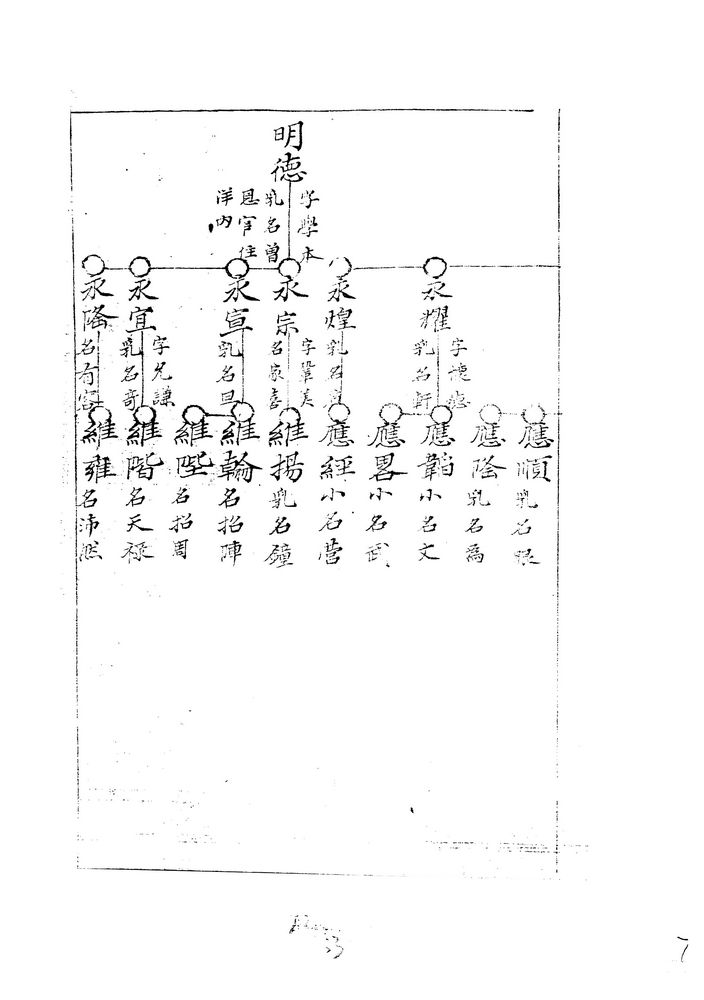 明德
字學本
乳名曽
恩官住
洋内
永耀
字德懋
乳名軒
永煌
乳名
永宗
字鞏美
名家喜
永宣
乳名旦
永宜
字允謙
乳名奇
永隆
名有容
應順
乳名
應隆
乳名為
應韜
小名文
應畧
小名武
應經
小名營
維揚
乳名鐘
維輪
名招陣
維陛
名招周
維階
名天禄
維雍
名沛然
7